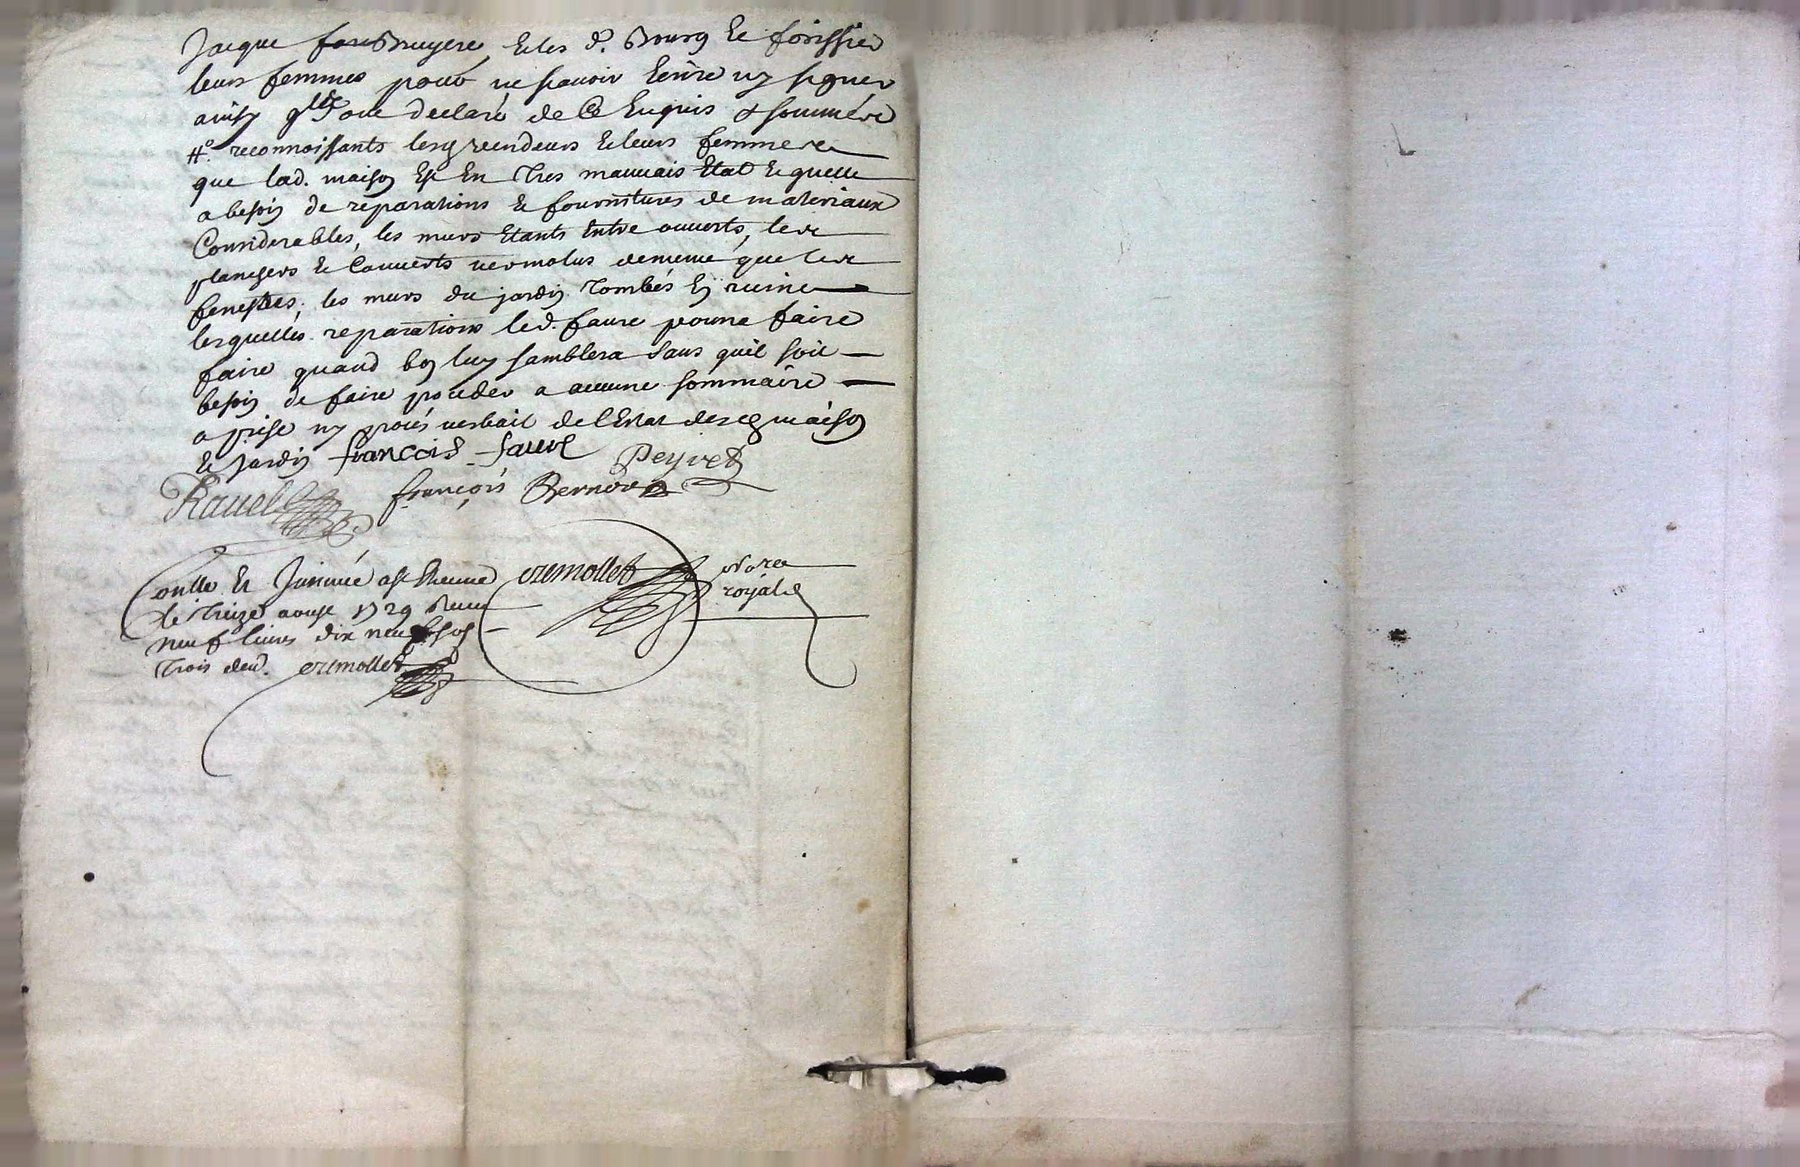 Jacque fonbruyere, Et les d. Bourg Et forissier
leurs femmes pour ne scavoir Ecrire ny signer
ainsy quils ont declaré de ce Enquis & sommés
#. reconnoissants lesq. vendeurs Et leurs femmes
que lad. maison Est En tres mauvais Etat Et quelle
a besoin de reparations Et fournitures de materiaux
Considerables, les murs Etants Entre ouverts, les
planchers Et Couverts vermolus dememe que les
fenestres, les murs du jardin tombés En ruine
lesquelles reparations led. faure pourra faire
faire quand bon luy samblera sans quil soit
besoin de faire proceder a aucune sommaire
aprise ny procés verbail de l'Etat desq. maison
Et jardin françois faure Peyret
Ravel françois Bernou
onlle Et Insinué a st Etienne
le treize aoust 1729 Receu
neuf livres dix neuf sols
trois den. cremollet
cremollet no.re
royal